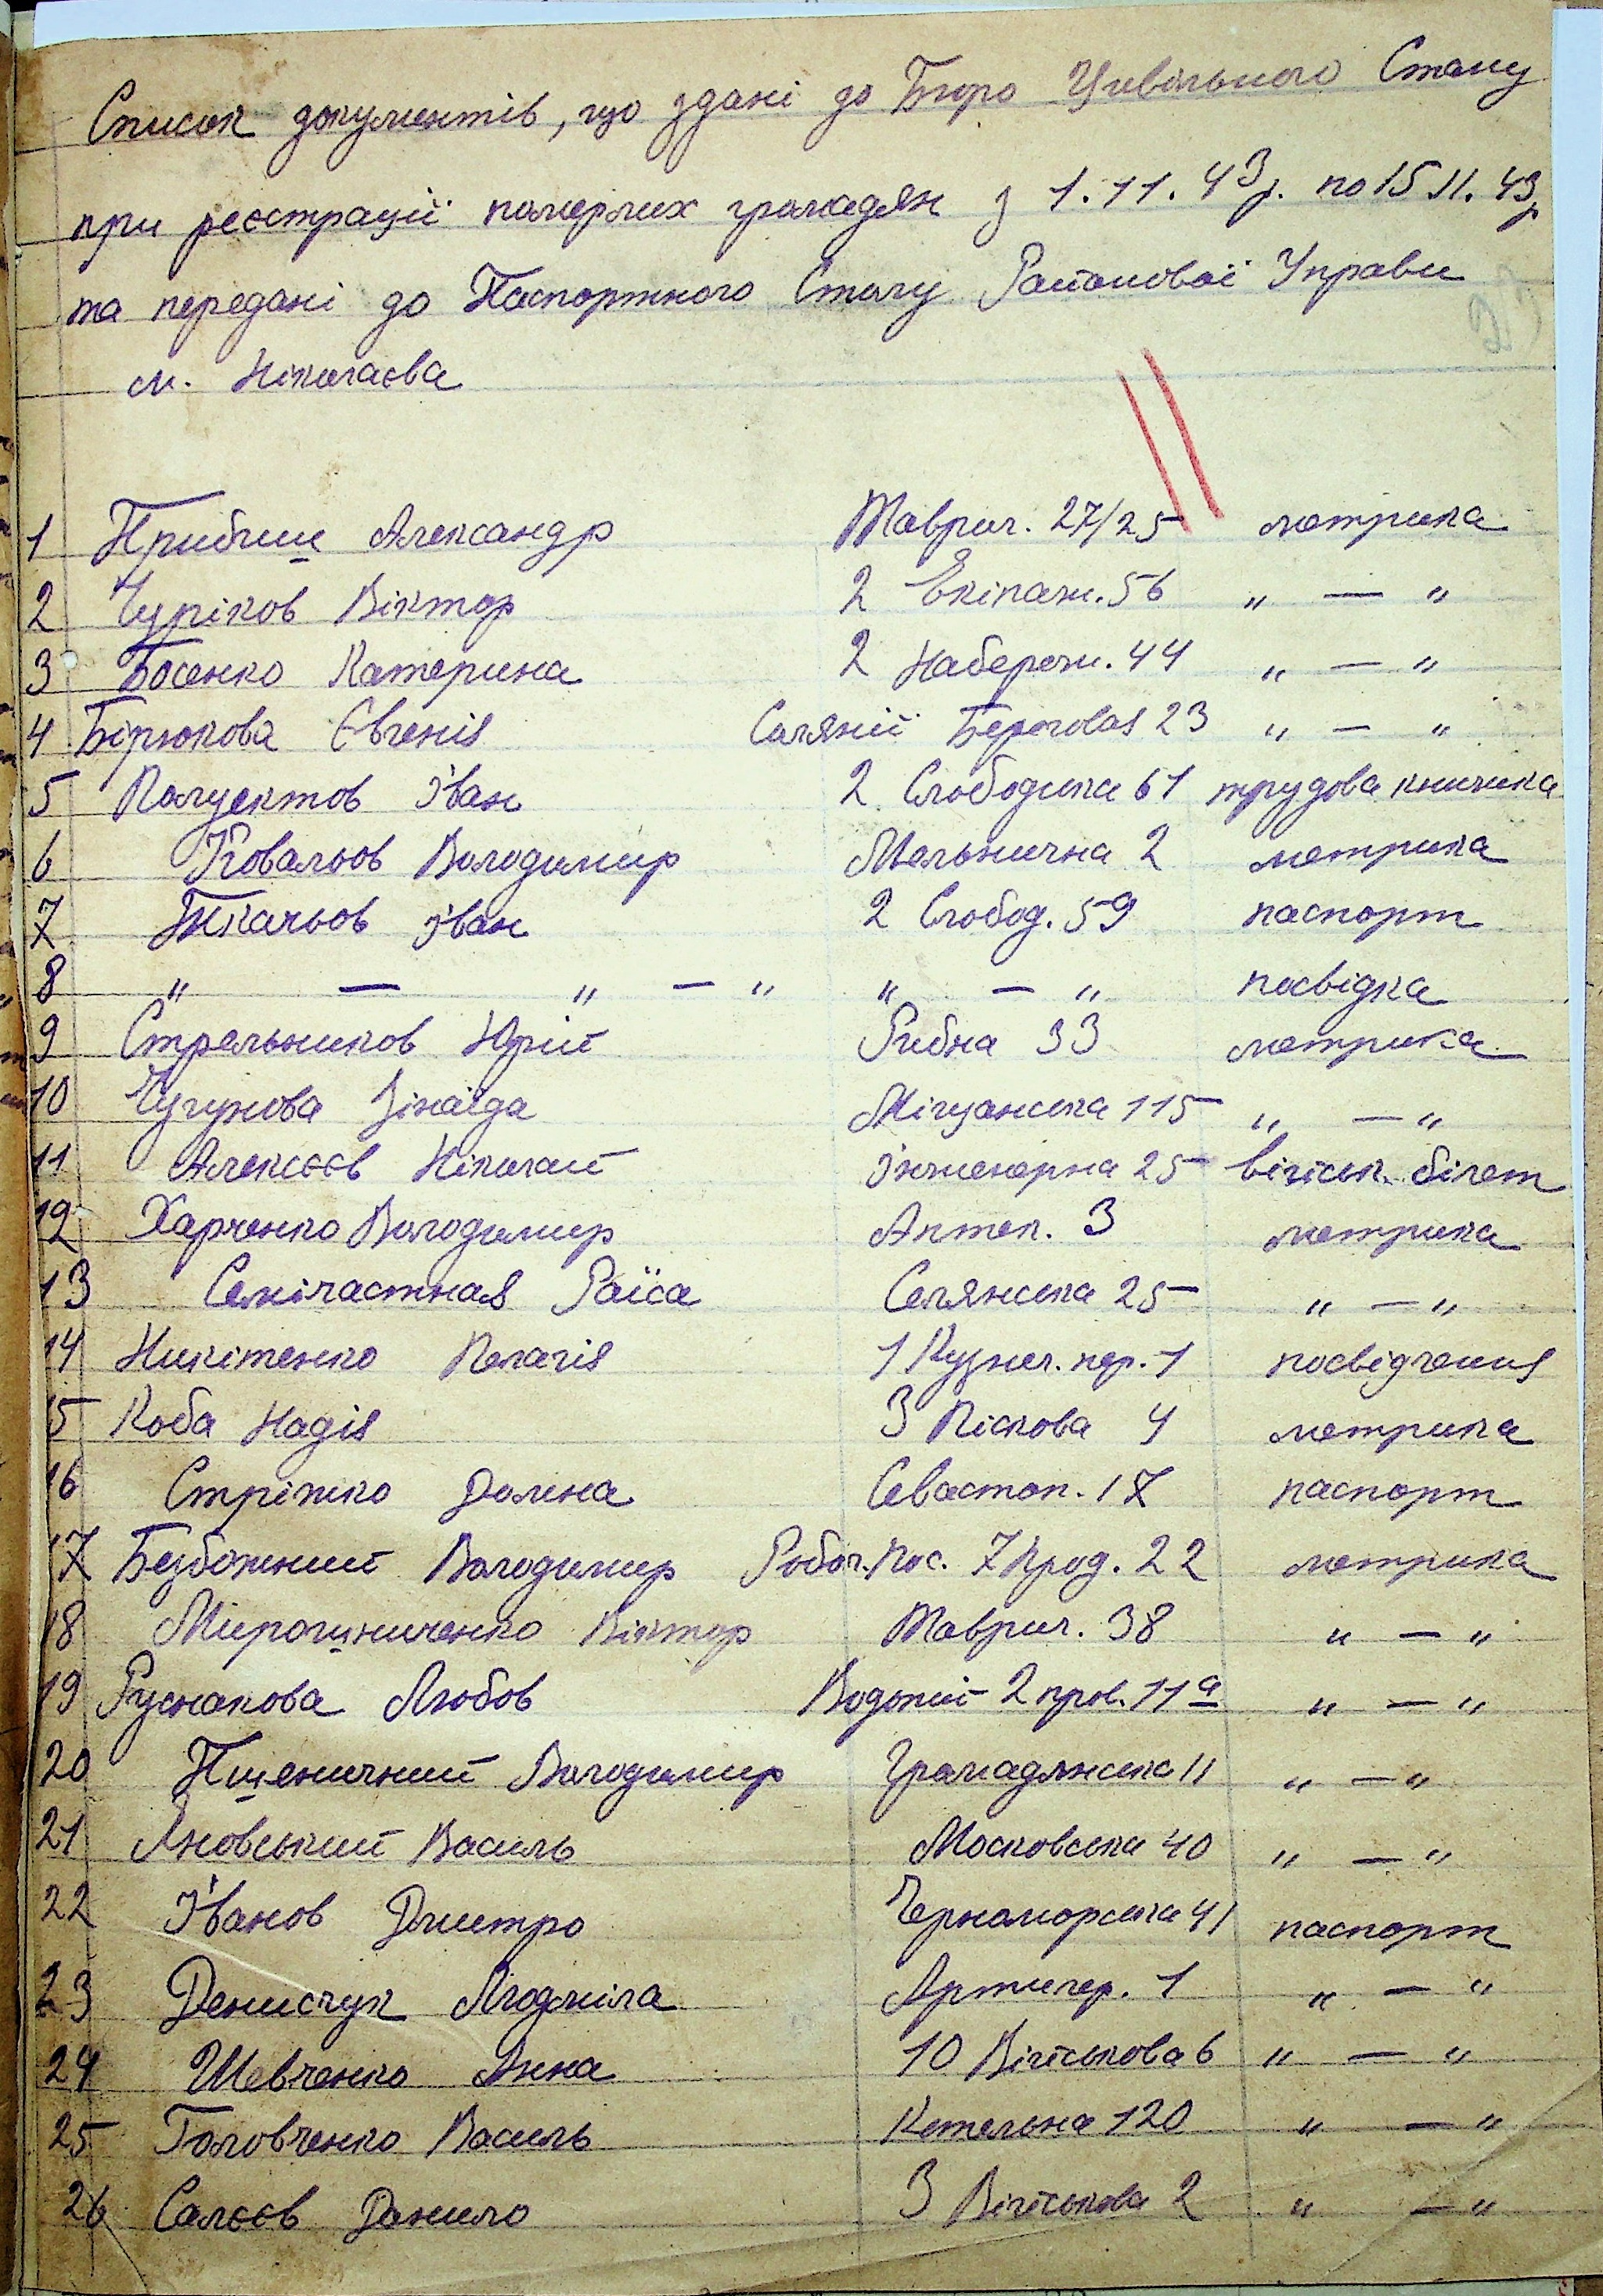 Список документів, що здані до Бюро Цивільного Стану
при реєстрації померлих громадян з 1.11.43р. по 15 11. 43р
та передані до Паспортного Столу Районової Управи
м. Ніколаєва
1 Прибиш Александр Таврич. 27/25 метрика
2 Чуріков Віктор 2 Екіпаж. 56 „ — „
3 Босенко Катерина 2 Набережн. 44 „ — „
4 Бірюкова Євгенія Берегова 23 „ — „
5 Полуектов Іван 2 Слободська 61 трудова книжка
6 Ковальов Володимир Мельнична 2 метрика
7 Ткачьов Іван 2 Слобод. 59 паспорт
8 „ — „ — „ „ — „ посвідка
9 Стрельников Юрій Рибна 33 метрика
10 Чугунова Зінаїда 115 „ — „
11 Алексєєв Ніколай Інженерна 25 військ. білет
12 Харченко Володимир Аптек. 3 метрика
13 Семічастная Раїса Селянська 25 „ — „
14 Никітенко Пелагія 1 Кузнеч. пер. 1 посвідчення
15 Коба Надія 3 Піскова 4 метрика
16 Стріжко Домна Севастоп. 17 паспорт
17 Безбожний Володимир Робоч. Пос. 7 Прод. 22 метрика
18 Мірошниченко Віктор Таврич. 38 „ — „
19 Руснакова Любов Водопій 2 пров. 11а „ — „
20 Пшеничний Володимир Громадянська 11 „ — „
21 Яновський Василь Московська 40 „ — „
22 Іванов Дмитро Черноморська 41 паспорт
23 Денисчук Людміла Артилер. 1 „ — „
24 Шевченко Анна 10 Військова 6 „ — „
25 Головченко Василь Котельна 120 „ — „
26 Салєєв Данило 3 Військова 2 „ — „